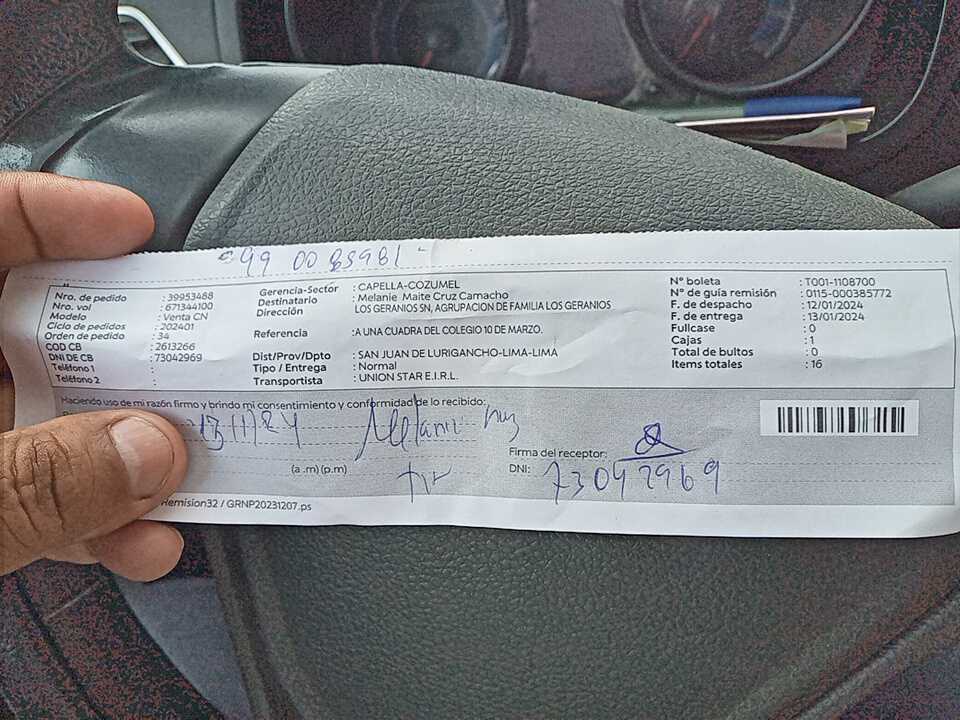 99 0085981
Nro. de pedido : 39953488
Nro. vol : 671344100
Modelo : Venta CN
Ciclo de pedidos : 202401
Orden de pedido : 34
COD CB : 2613266
DNI DE CB : 73042969
Teléfono 1 :
Teléfono 2 :
Gerencia-Sector : CAPELLA-COZUMEL
Destinatario : Melanie Maite Cruz Camacho
Dirección LOS GERANIOS SN, AGRUPACION DE FAMILIA LOS GERANIOS
Referencia : A UNA CUADRA DEL COLEGIO 10 DE MARZO.
Dist/Prov/Dpto : SAN JUAN DE LURIGANCHO-LIMA-LIMA
Tipo / Entrega : Normal
Transportista : UNION STAR E.I.R.L.
N° boleta : T001-1108700
N° de guía remisión : 0115-000385772
F. de despacho : 12/01/2024
F. de entrega : 13/01/2024
Fullcase : 0
Cajas : 1
Total de bultos : 0
Items totales : 16
Haciendo uso de mi razón firmo y brindo mi consentimiento y conformidad de lo recibido:
13/1/24
Melanie
(a .m) (p.m)
Firma del receptor:
DNI: 73042969
Remision32 / GRNP20231207.ps